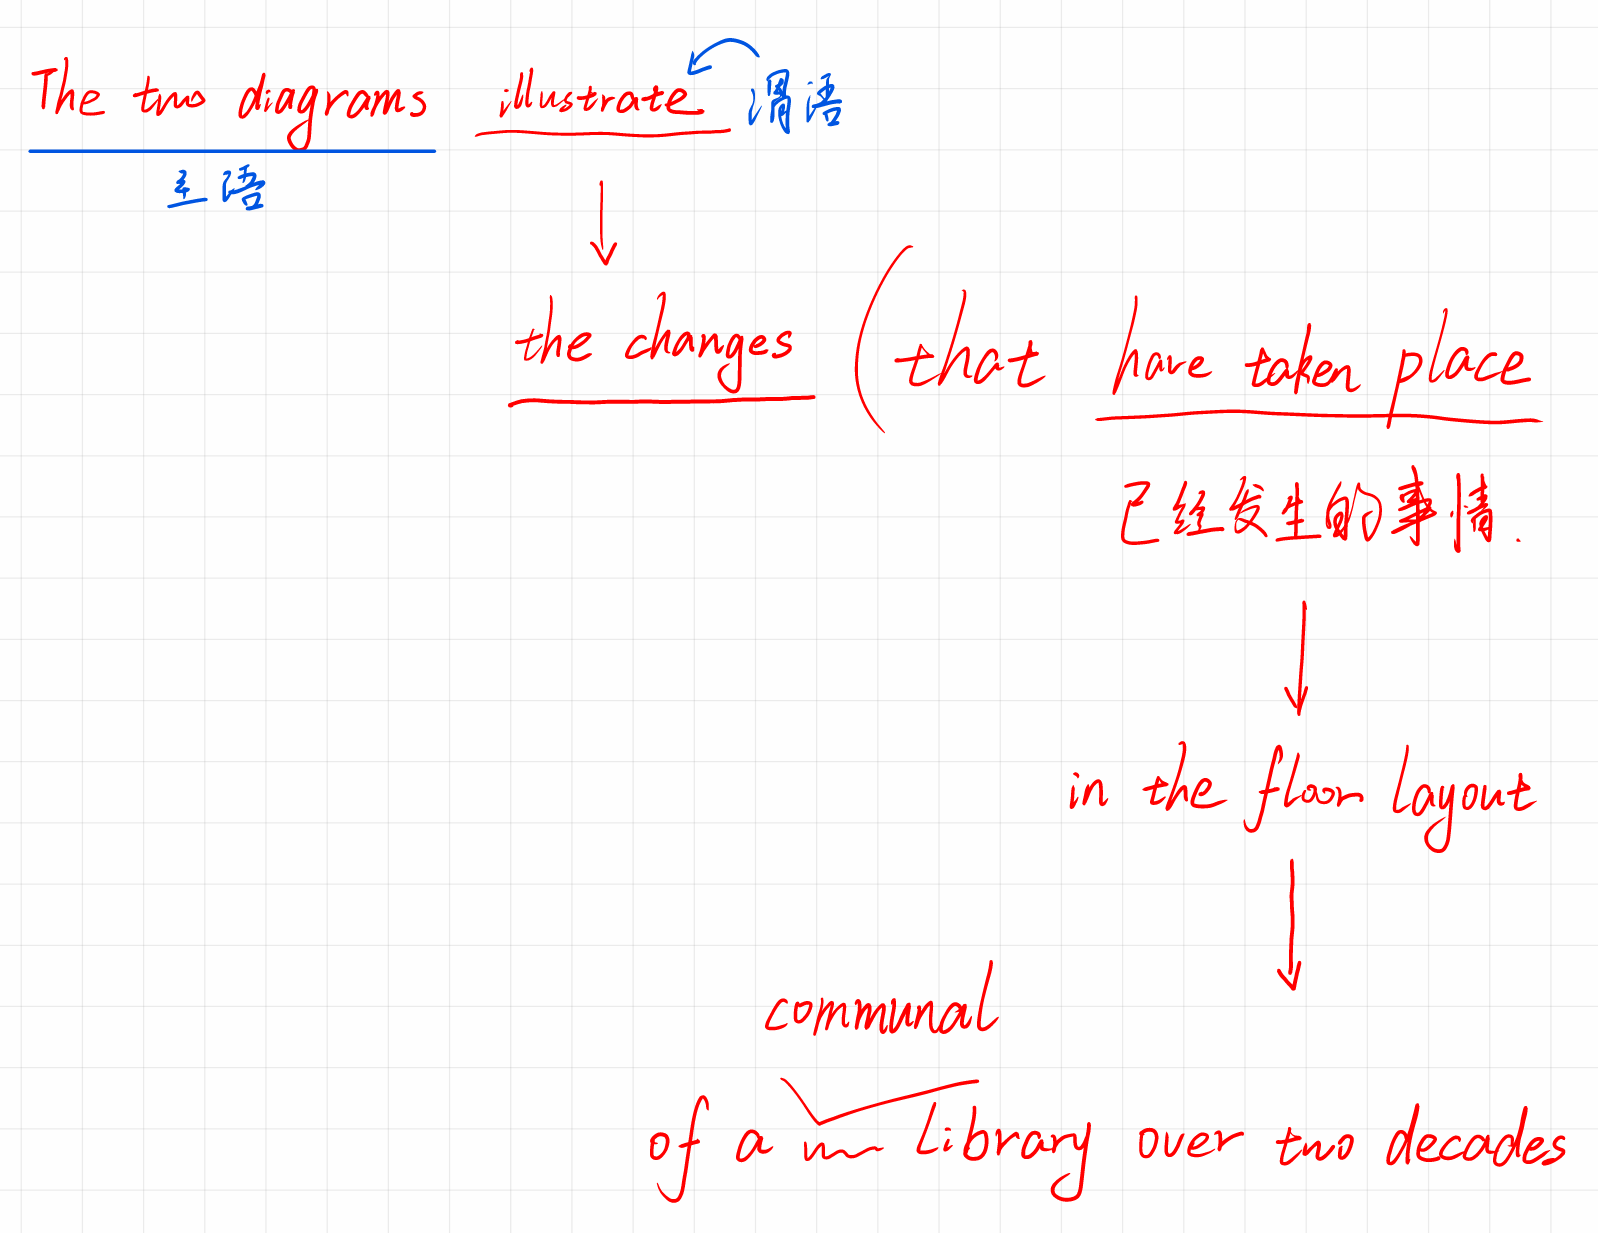 The two diagrams illustrate 谓语
主语
the changes (that have taken place
已经发生的事情.
in the floor layout
communal
of a library over two decades